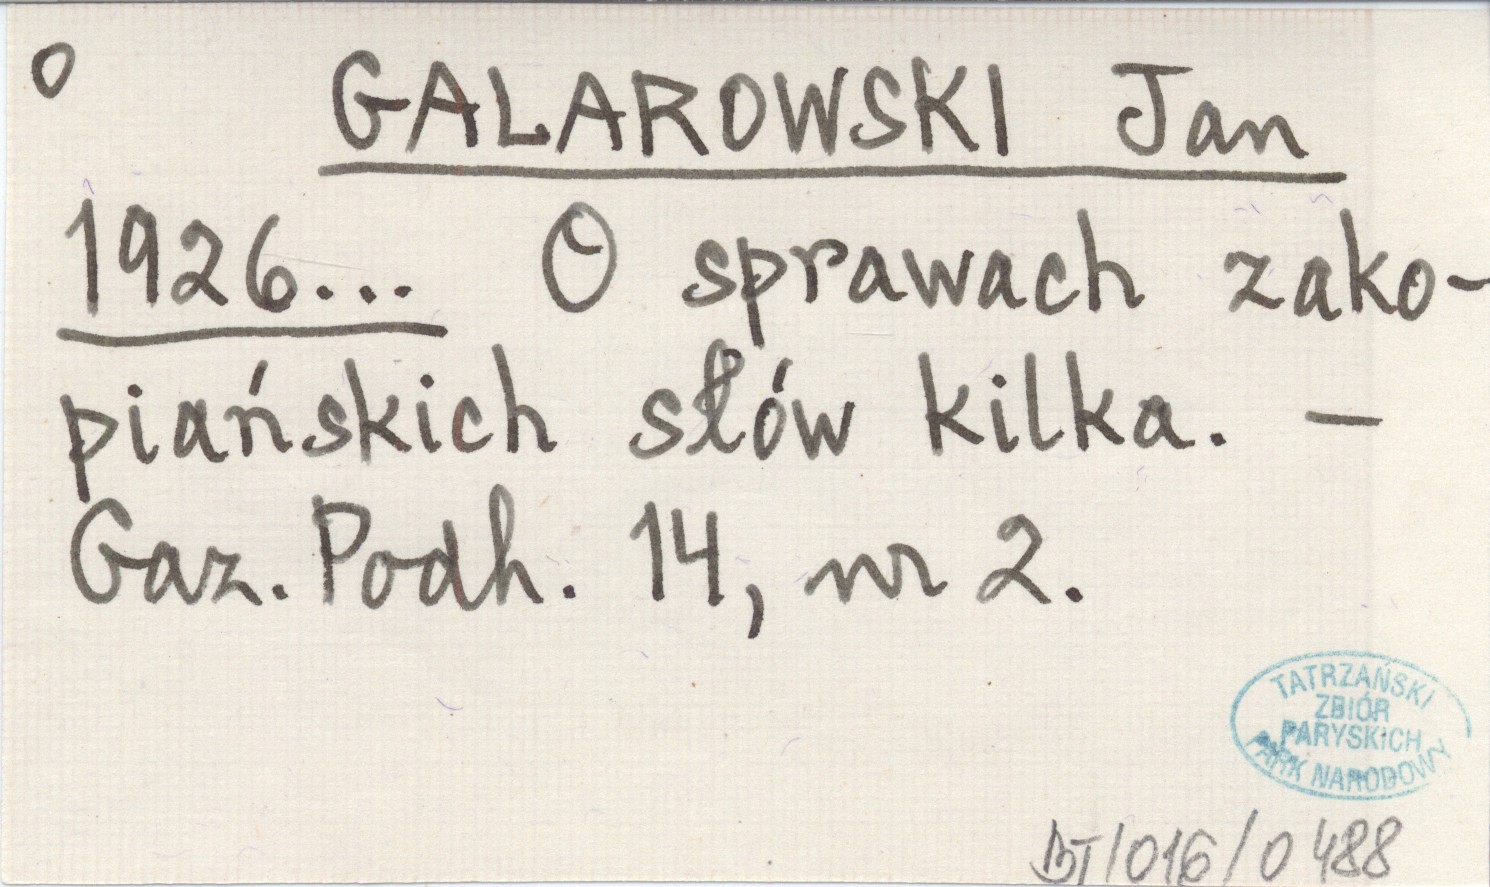 O GALAROWSKI Jan
1926... O sprawach zako-
piańskich słów kilka. —
Gaz. Podh. 14, nr 2.
TATRZAŃSKI
ZBIÓR
PARYSKICH
PARK NARODOWY
BT/016/0488